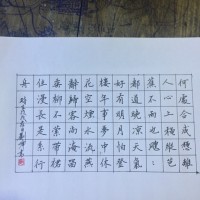 何處合成愁離
人心上秋縱芭
蕉不雨也颼:
都道晚涼天氣
好有明月怕登
樓年事夢中休
花空煙水流燕
辭歸客尚淹留
垂柳不縈帶裙
住漫長是系行
舟